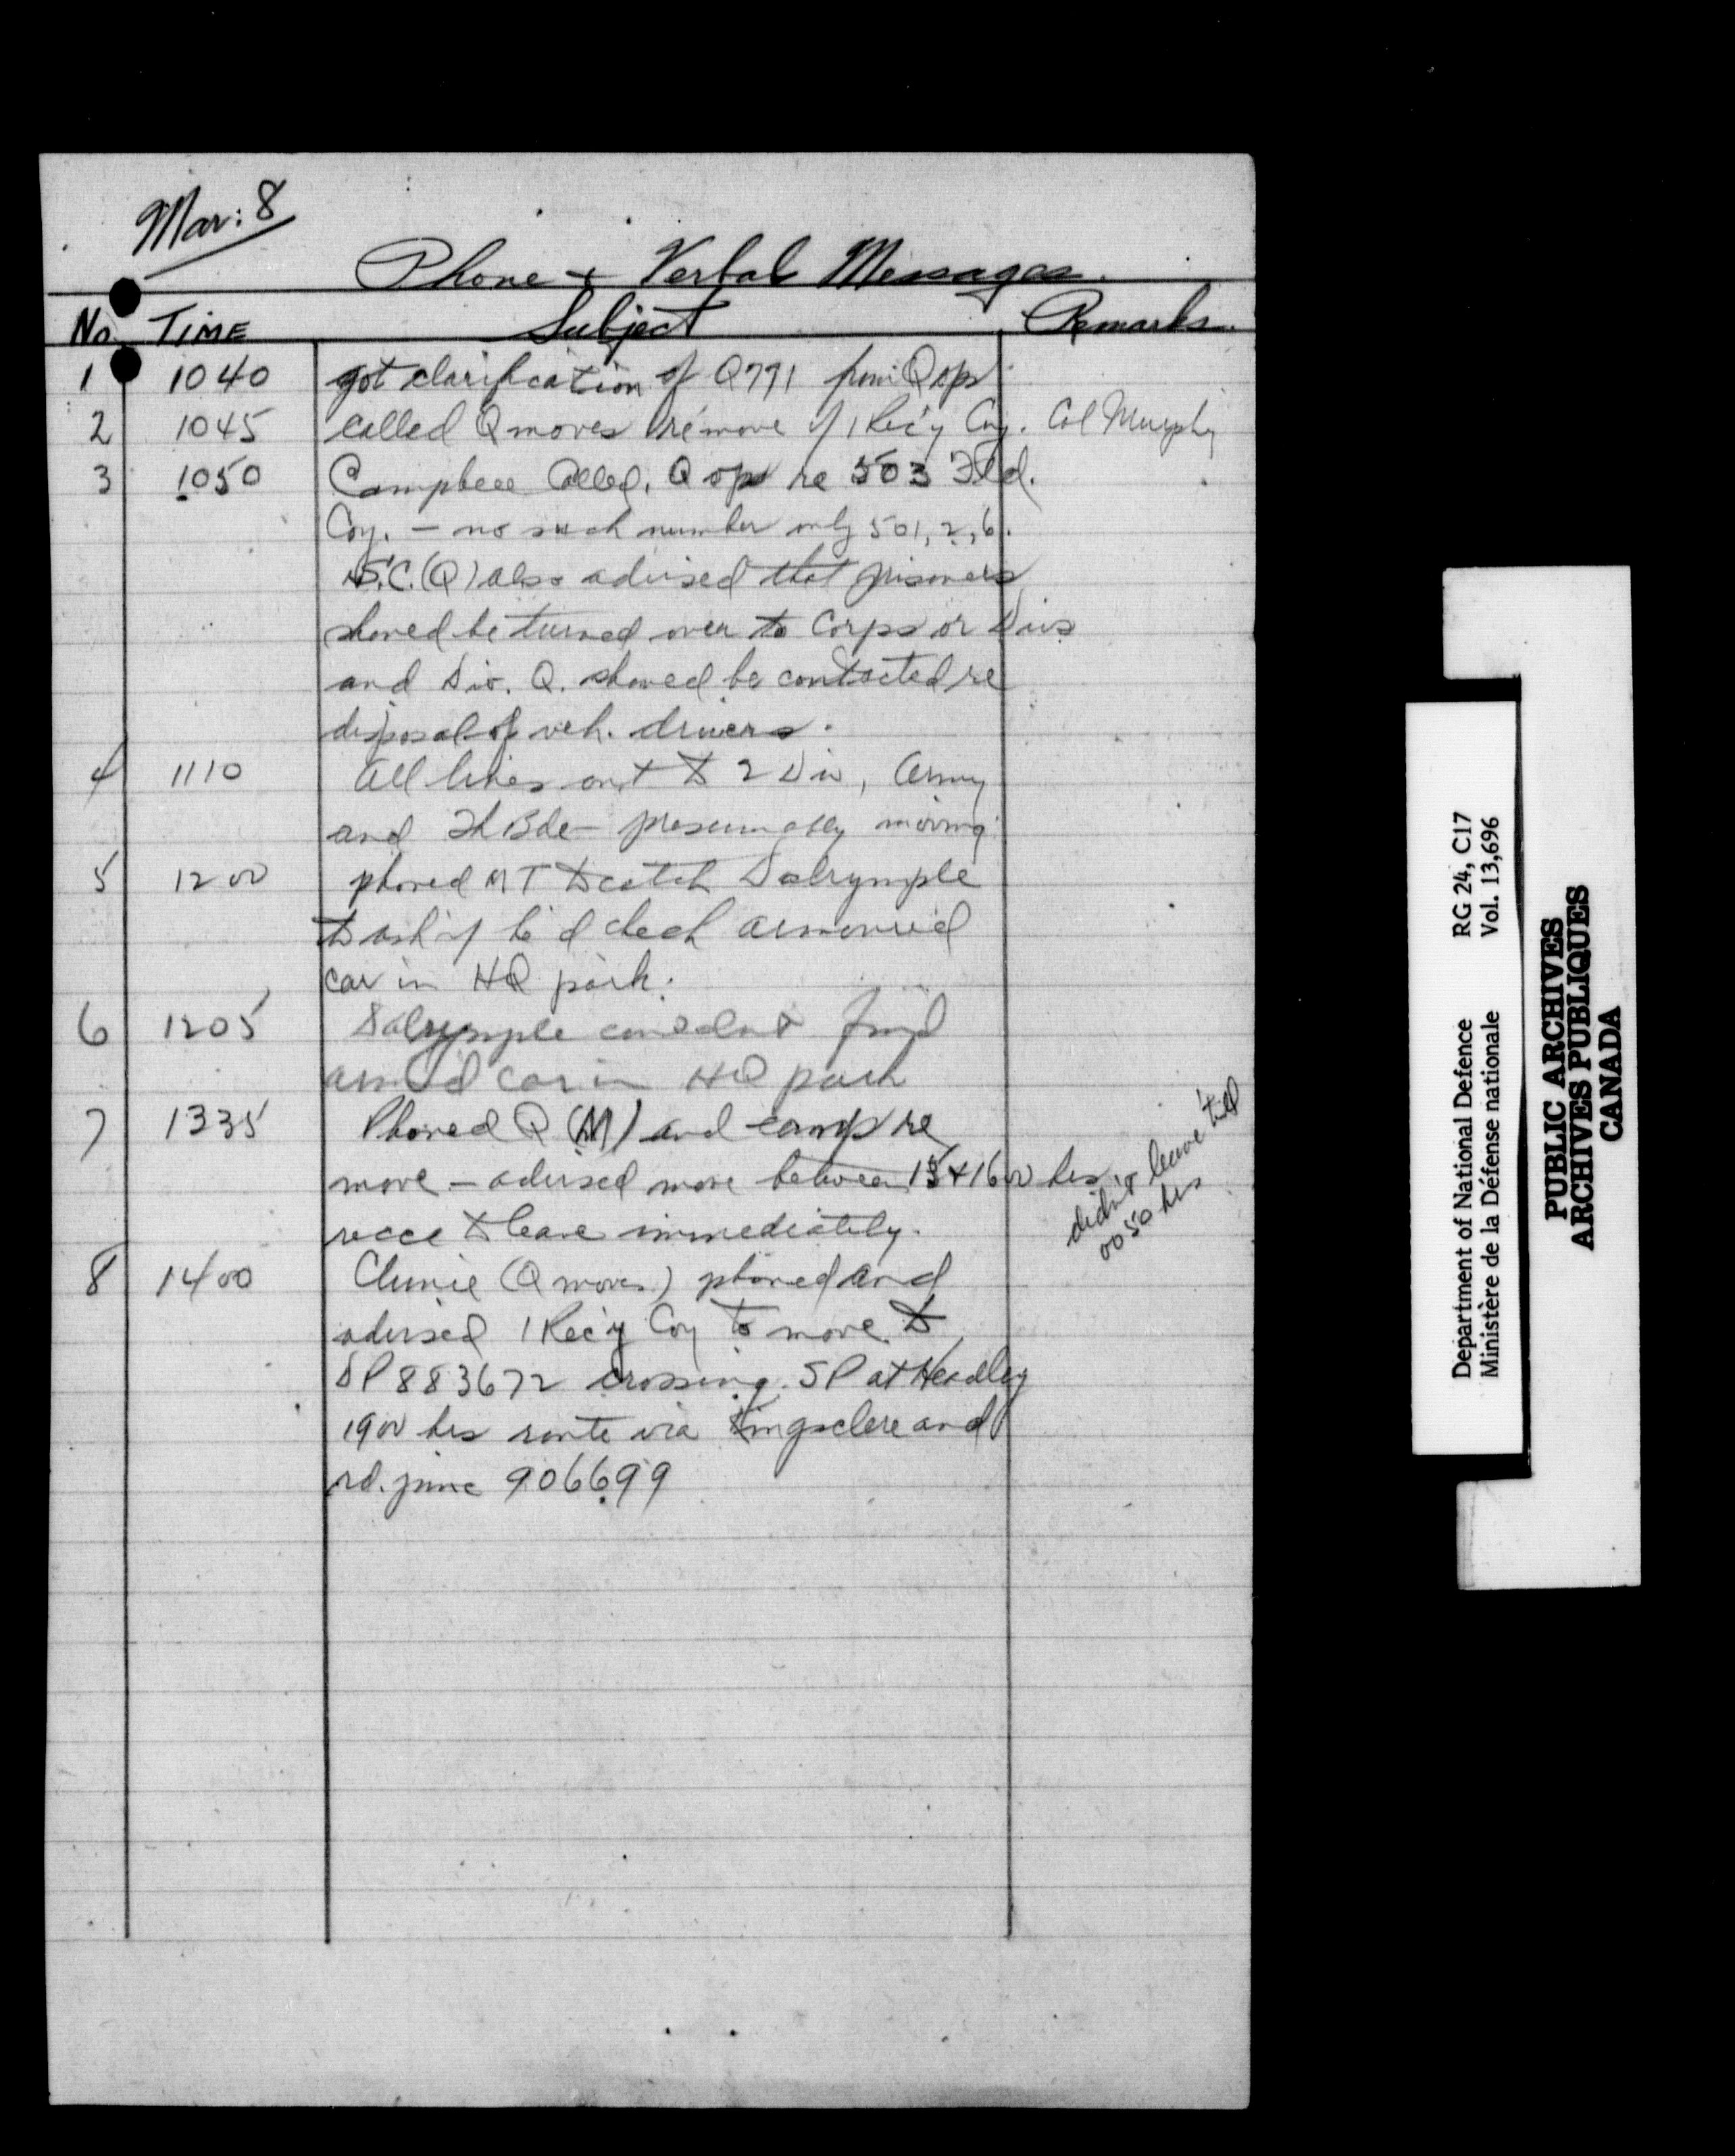 Mar: 8
Phone + Verbal Messages.
No. TIME Subject Remarks.
1 1040 got clarification of Q771 from Q ops
2 1045 called Q moves re move of 1 Rec'y Coy. Col Murphy
3 1050 Campbell called. Q ops re 503 Fld.
Coy. - no such number only 501, 2, 6.
S.C. (Q) also advised that prisoners
should be turned over to Corps or Divs
and Div. Q. should be contacted re
disposal of veh. drivers.
4 1110 All lines out to 2 Div, Army
and Bde - presumably moving
5 1200 phoned MT to catch Dalrymple
to ask if he'd check armoured
car in HQ park.
6 1205 Dalrymple couldn't find
arm'd car in HQ park
7 1335 Phoned Q (M) and camp re
move - advised move between 15 + 1600 hrs.
recce to leave immediately.
didn't leave 'till
0050 hrs
8 1400 Clunie (Q moves) phoned and
advised 1 Rec'y Coy to move to
DP 883672 crossing SP at Headley
1900 hrs route via Kingsclere and
rd. junc 906699
Department of National Defence RG 24, C17
Ministère de la Défense nationale Vol. 13,696
PUBLIC ARCHIVES
ARCHIVES PUBLIQUES
CANADA